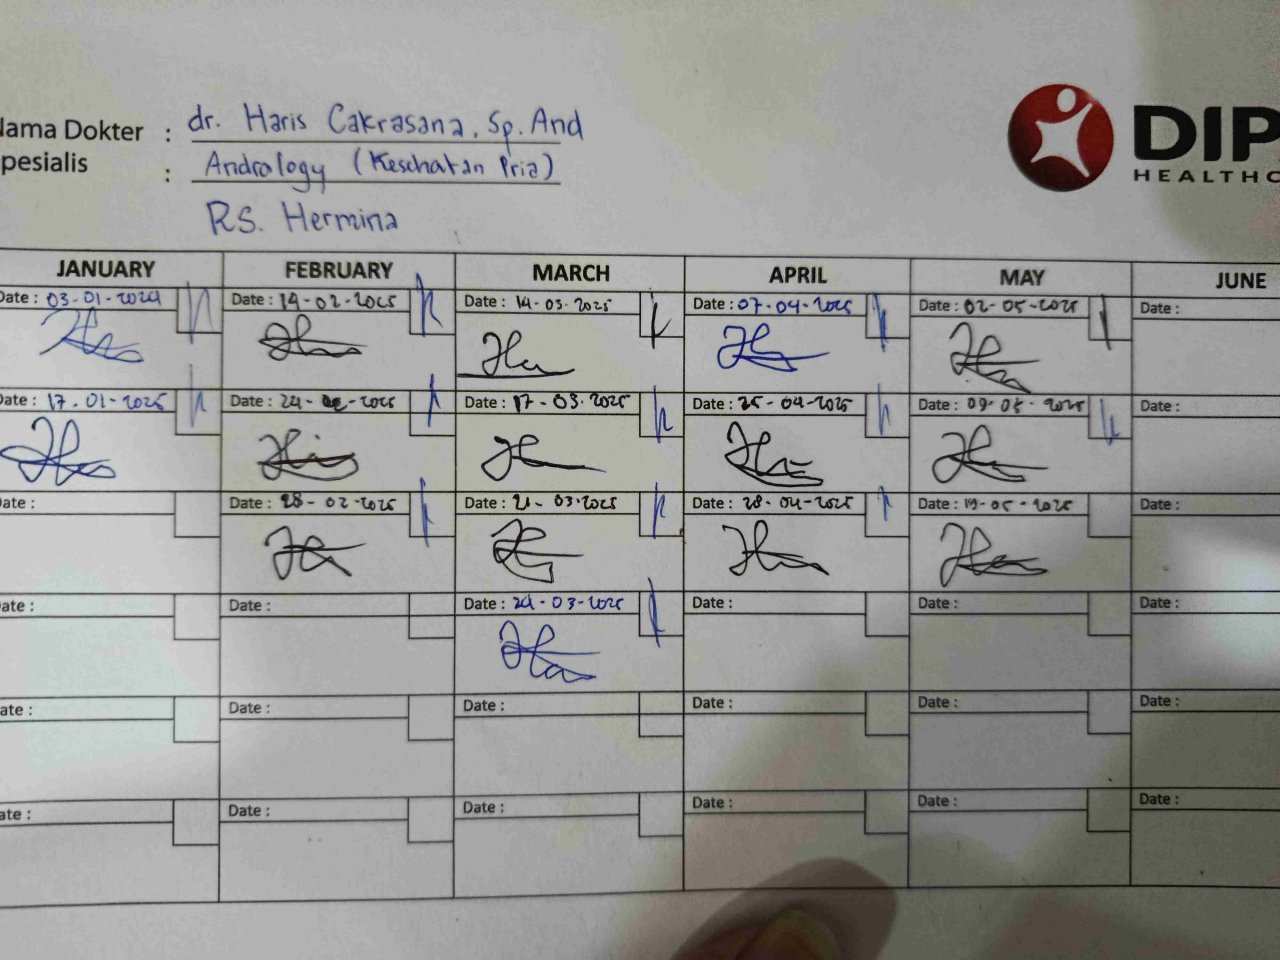 Nama Dokter : dr. Haris Cakrasana, Sp. And
pesialis : Andrology (Kesehatan Pria)
RS. Hermina
DIP
HEALTHC
JANUARY FEBRUARY MARCH APRIL MAY JUNE
Date : 03-01-2024 Date : 14-02-2025 Date : 14-03-2025 Date : 07-04-2025 Date : 02-05-2025 Date :
Date : 17-01-2025 Date : 24- -2025 Date : 17-03-2025 Date : 25-04-2025 Date : 09-05-2025 Date :
Date : Date : 28-02-2025 Date : 21-03-2025 Date : 28-04-2025 Date : 19-05-2025 Date :
Date : Date : Date : 24-03-2025 Date : Date : Date :
Date : Date : Date : Date : Date : Date :
Date : Date : Date : Date : Date : Date :